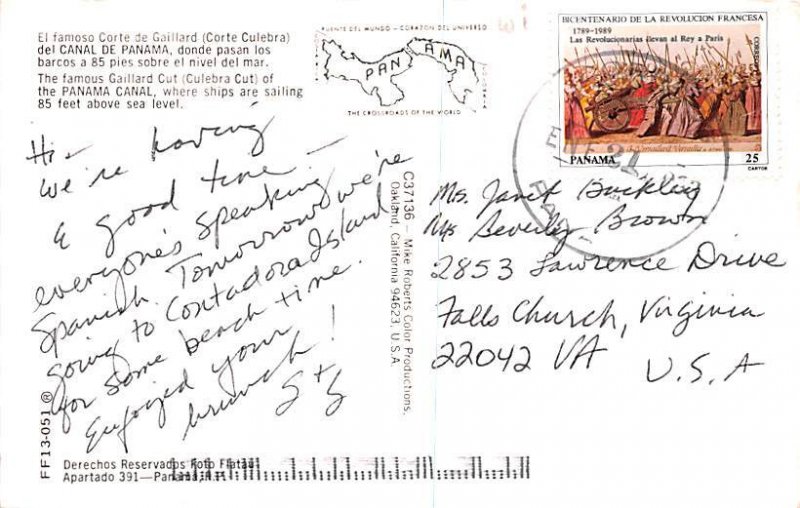 El famoso Corte de Gaillard (Corte Culebra)
del CANAL DE PANAMA, donde pasan los
barcos a 85 pies sobre el nivel del mar.
The famous Gaillard Cut (Culebra Cut) of
the PANAMA CANAL, where ships are sailing
85 feet above sea level.
PUENTE DEL MUNDO - CORAZON DEL UNIVERSO
PANAMA
THE CROSSROADS OF THE WORLD
BICENTENARIO DE LA REVOLUCION FRANCESA
1789-1989
Las Revolucionarias llevan al Rey a Paris
CORREOS
PANAMA 25
CARTOR
21
Hi -
We're having
a good time -
everyone's speaking
Spanish. Tomorrow we're
going to Contadora Island
for some beach time.
Enjoyed your
brunch!
C37136 - Mike Roberts Color Productions,
Oakland, California 94623, U.S.A.
Ms. Janet Buckley
Ms Beverly Brown
2853 Lawrence Drive
Falls Church, Virginia
22042 VA
U.S.A
FF13-051 ®
Derechos Reservados Foto Flatau
Apartado 391—Panamá, R.P.